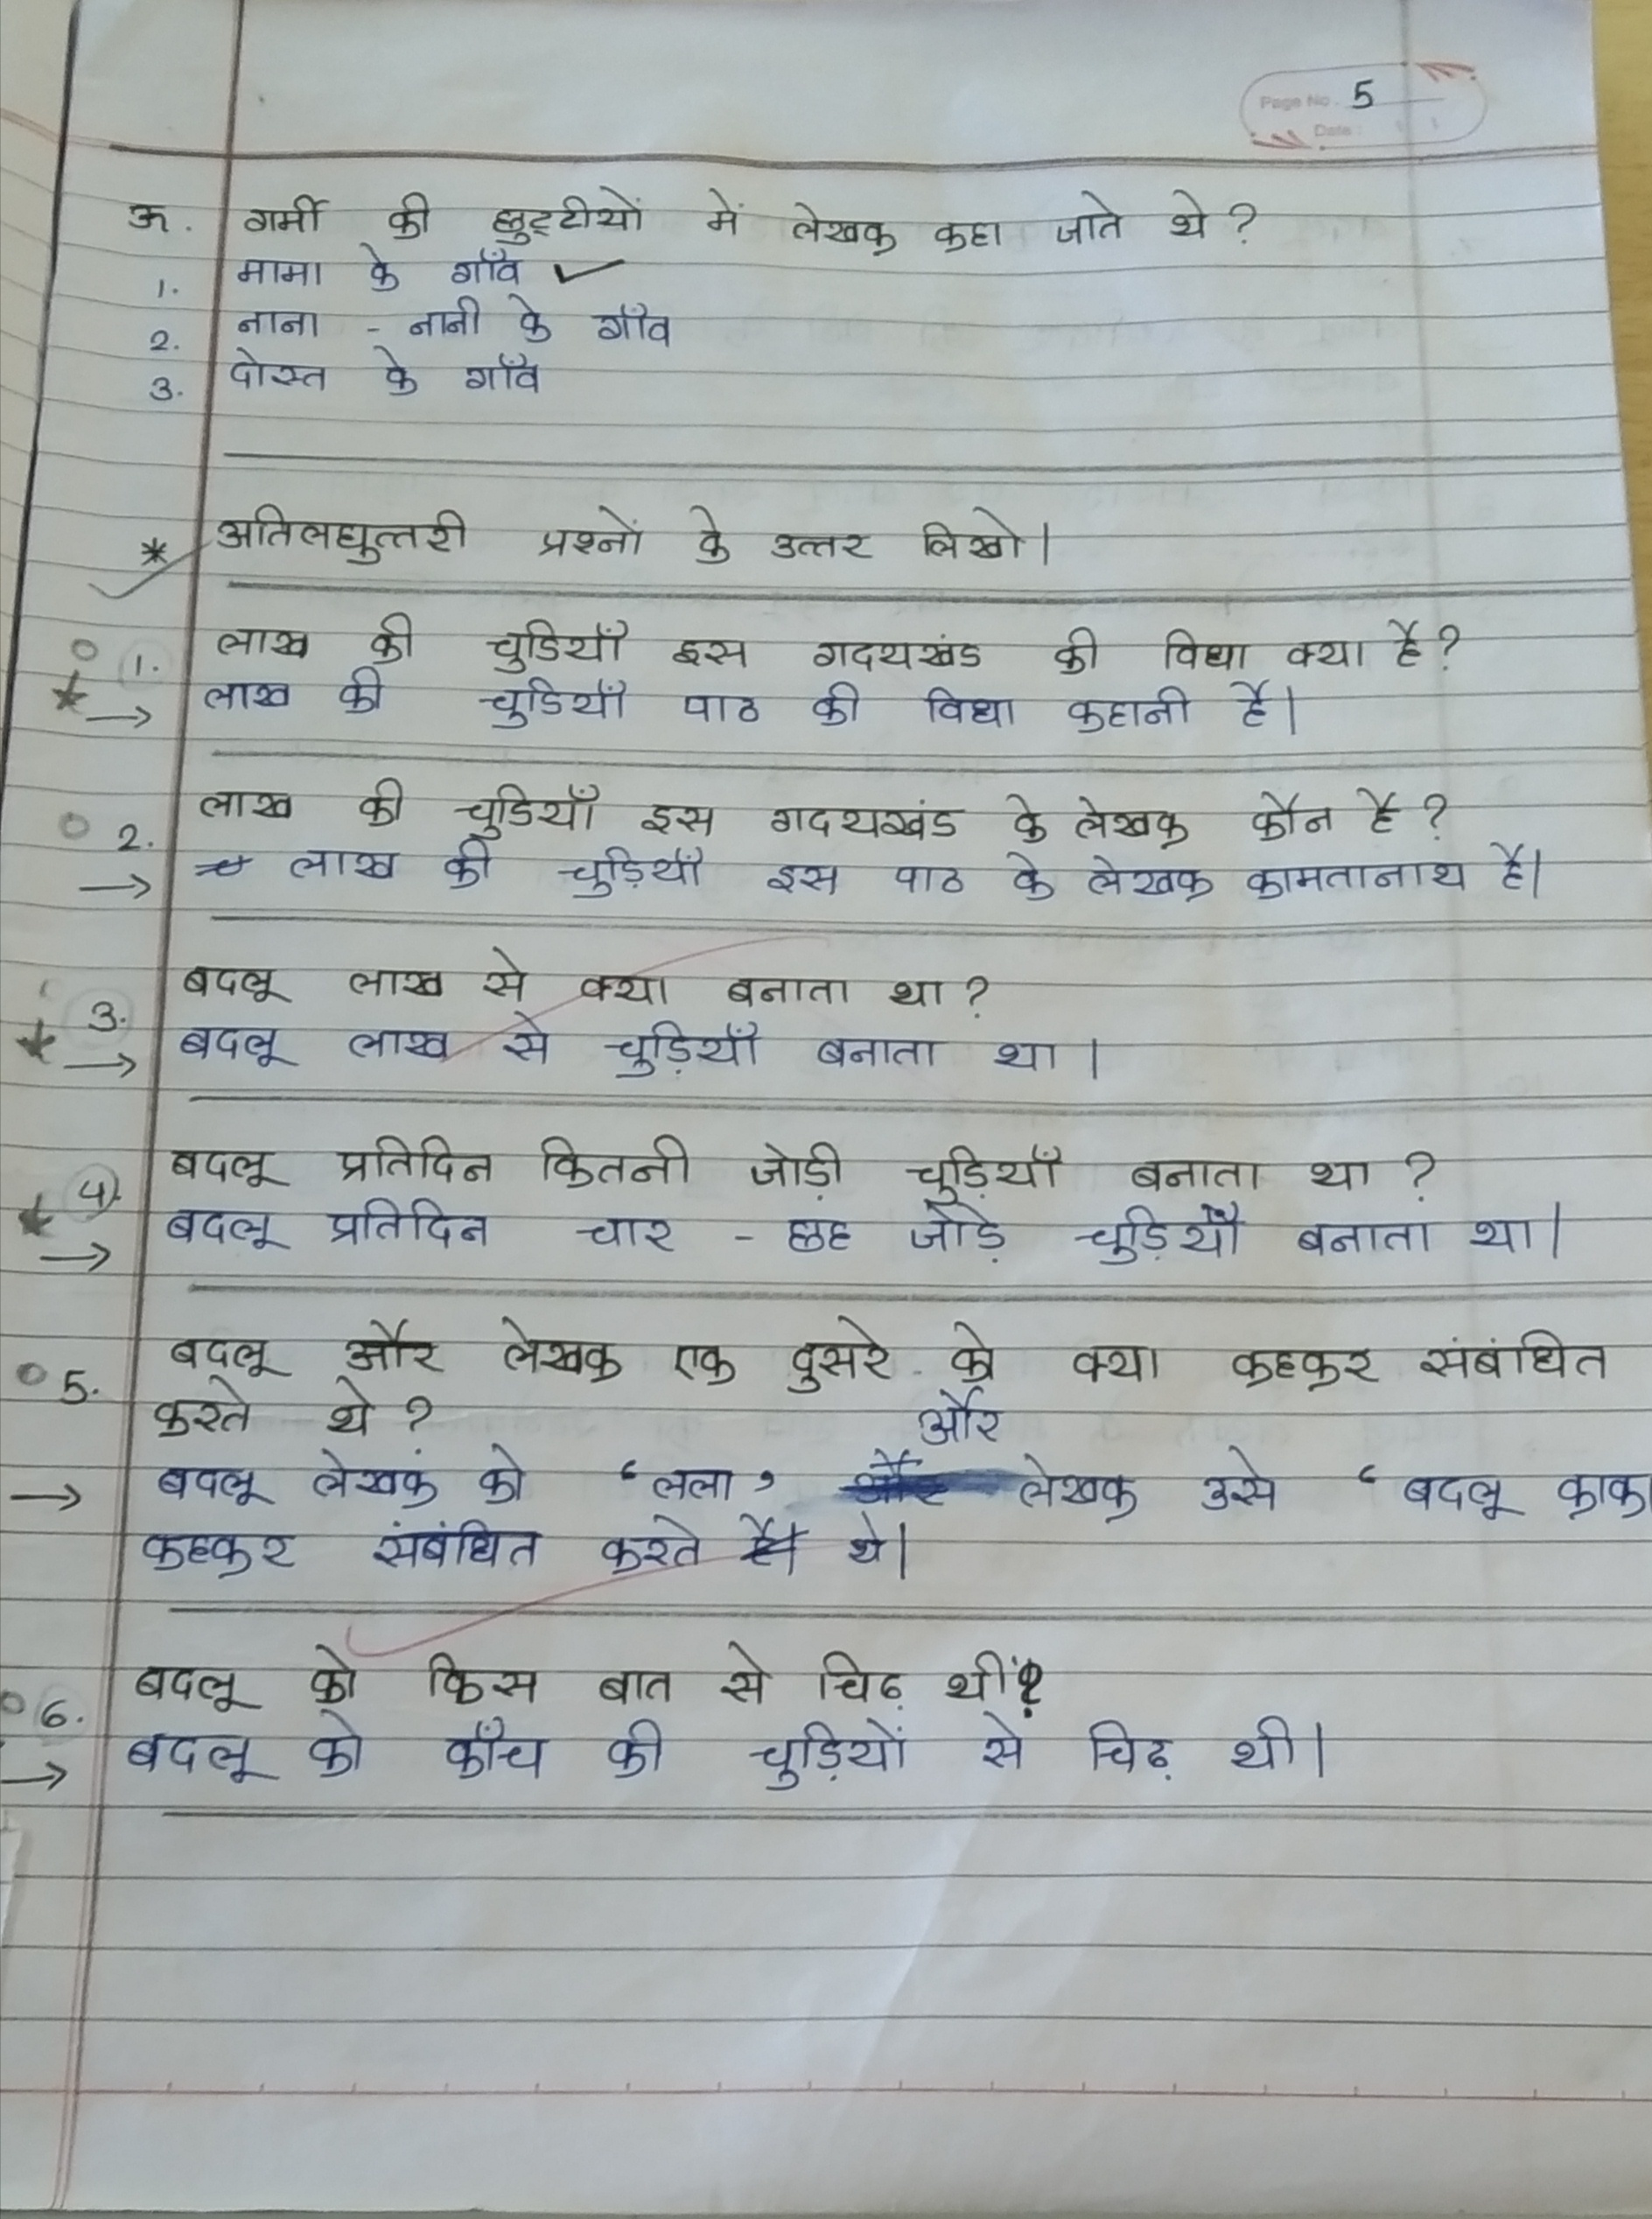 Page No. 5
Date :
ऊ. गर्मी की छुट्टीयों में लेखक कहा जाते थे?
1. मामा के गाँव ✓
2. नाना - नानी के गाँव
3. दोस्त के गाँव
* अतिलघुत्तरी प्रश्नों के उत्तर लिखो।
1. लाख की चुडियाँ इस गदयखंड की विधा क्या है?
→ लाख की चुडियाँ पाठ की विधा कहानी है।
2. लाख की चुडियाँ इस गदयखंड के लेखक कौन है?
→ लाख की चुड़ियाँ इस पाठ के लेखक कामतानाथ है।
3. बदलू लाख से क्या बनाता था?
→ बदलू लाख से चुड़ियाँ बनाता था।
4). बदलू प्रतिदिन कितनी जोड़ी चुड़ियाँ बनाता था?
→ बदलू प्रतिदिन चार - छह जोड़े चुड़ियाँ बनाता था।
5. बदलू और लेखक एक दुसरे को क्या कहकर संबंधित
करते थे?
और
→ बदलू लेखक को ‘लला’ लेखक उसे ‘बदलू काका
कहकर संबंधित करते थे।
6. बदलू को किस बात से चिढ़ थी?
→ बदलू को काँच की चुड़ियों से चिढ़ थी।